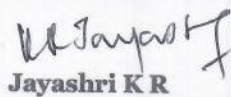 KR Jayashri
Jayashri K R